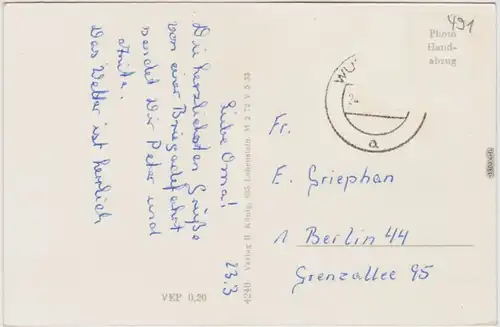 23.3
Liebe Oma!
Die herzlichsten Grüße
von einer Brigadefahrt
sendet Dir Peter und
Anita.
Das Wetter ist herrlich
VEP 0,20
4240 Verlag R. König, 685 Lobenstein. M 2 72 V 5 33
491
Photo
Hand-
abzug
a
Fr.
E. Griephan
1 Berlin 44
Grenzallee 95